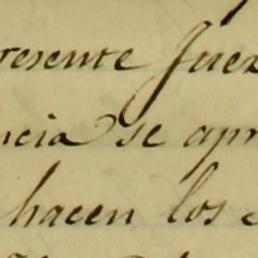 resente Juez
ncia se apr
hacen los